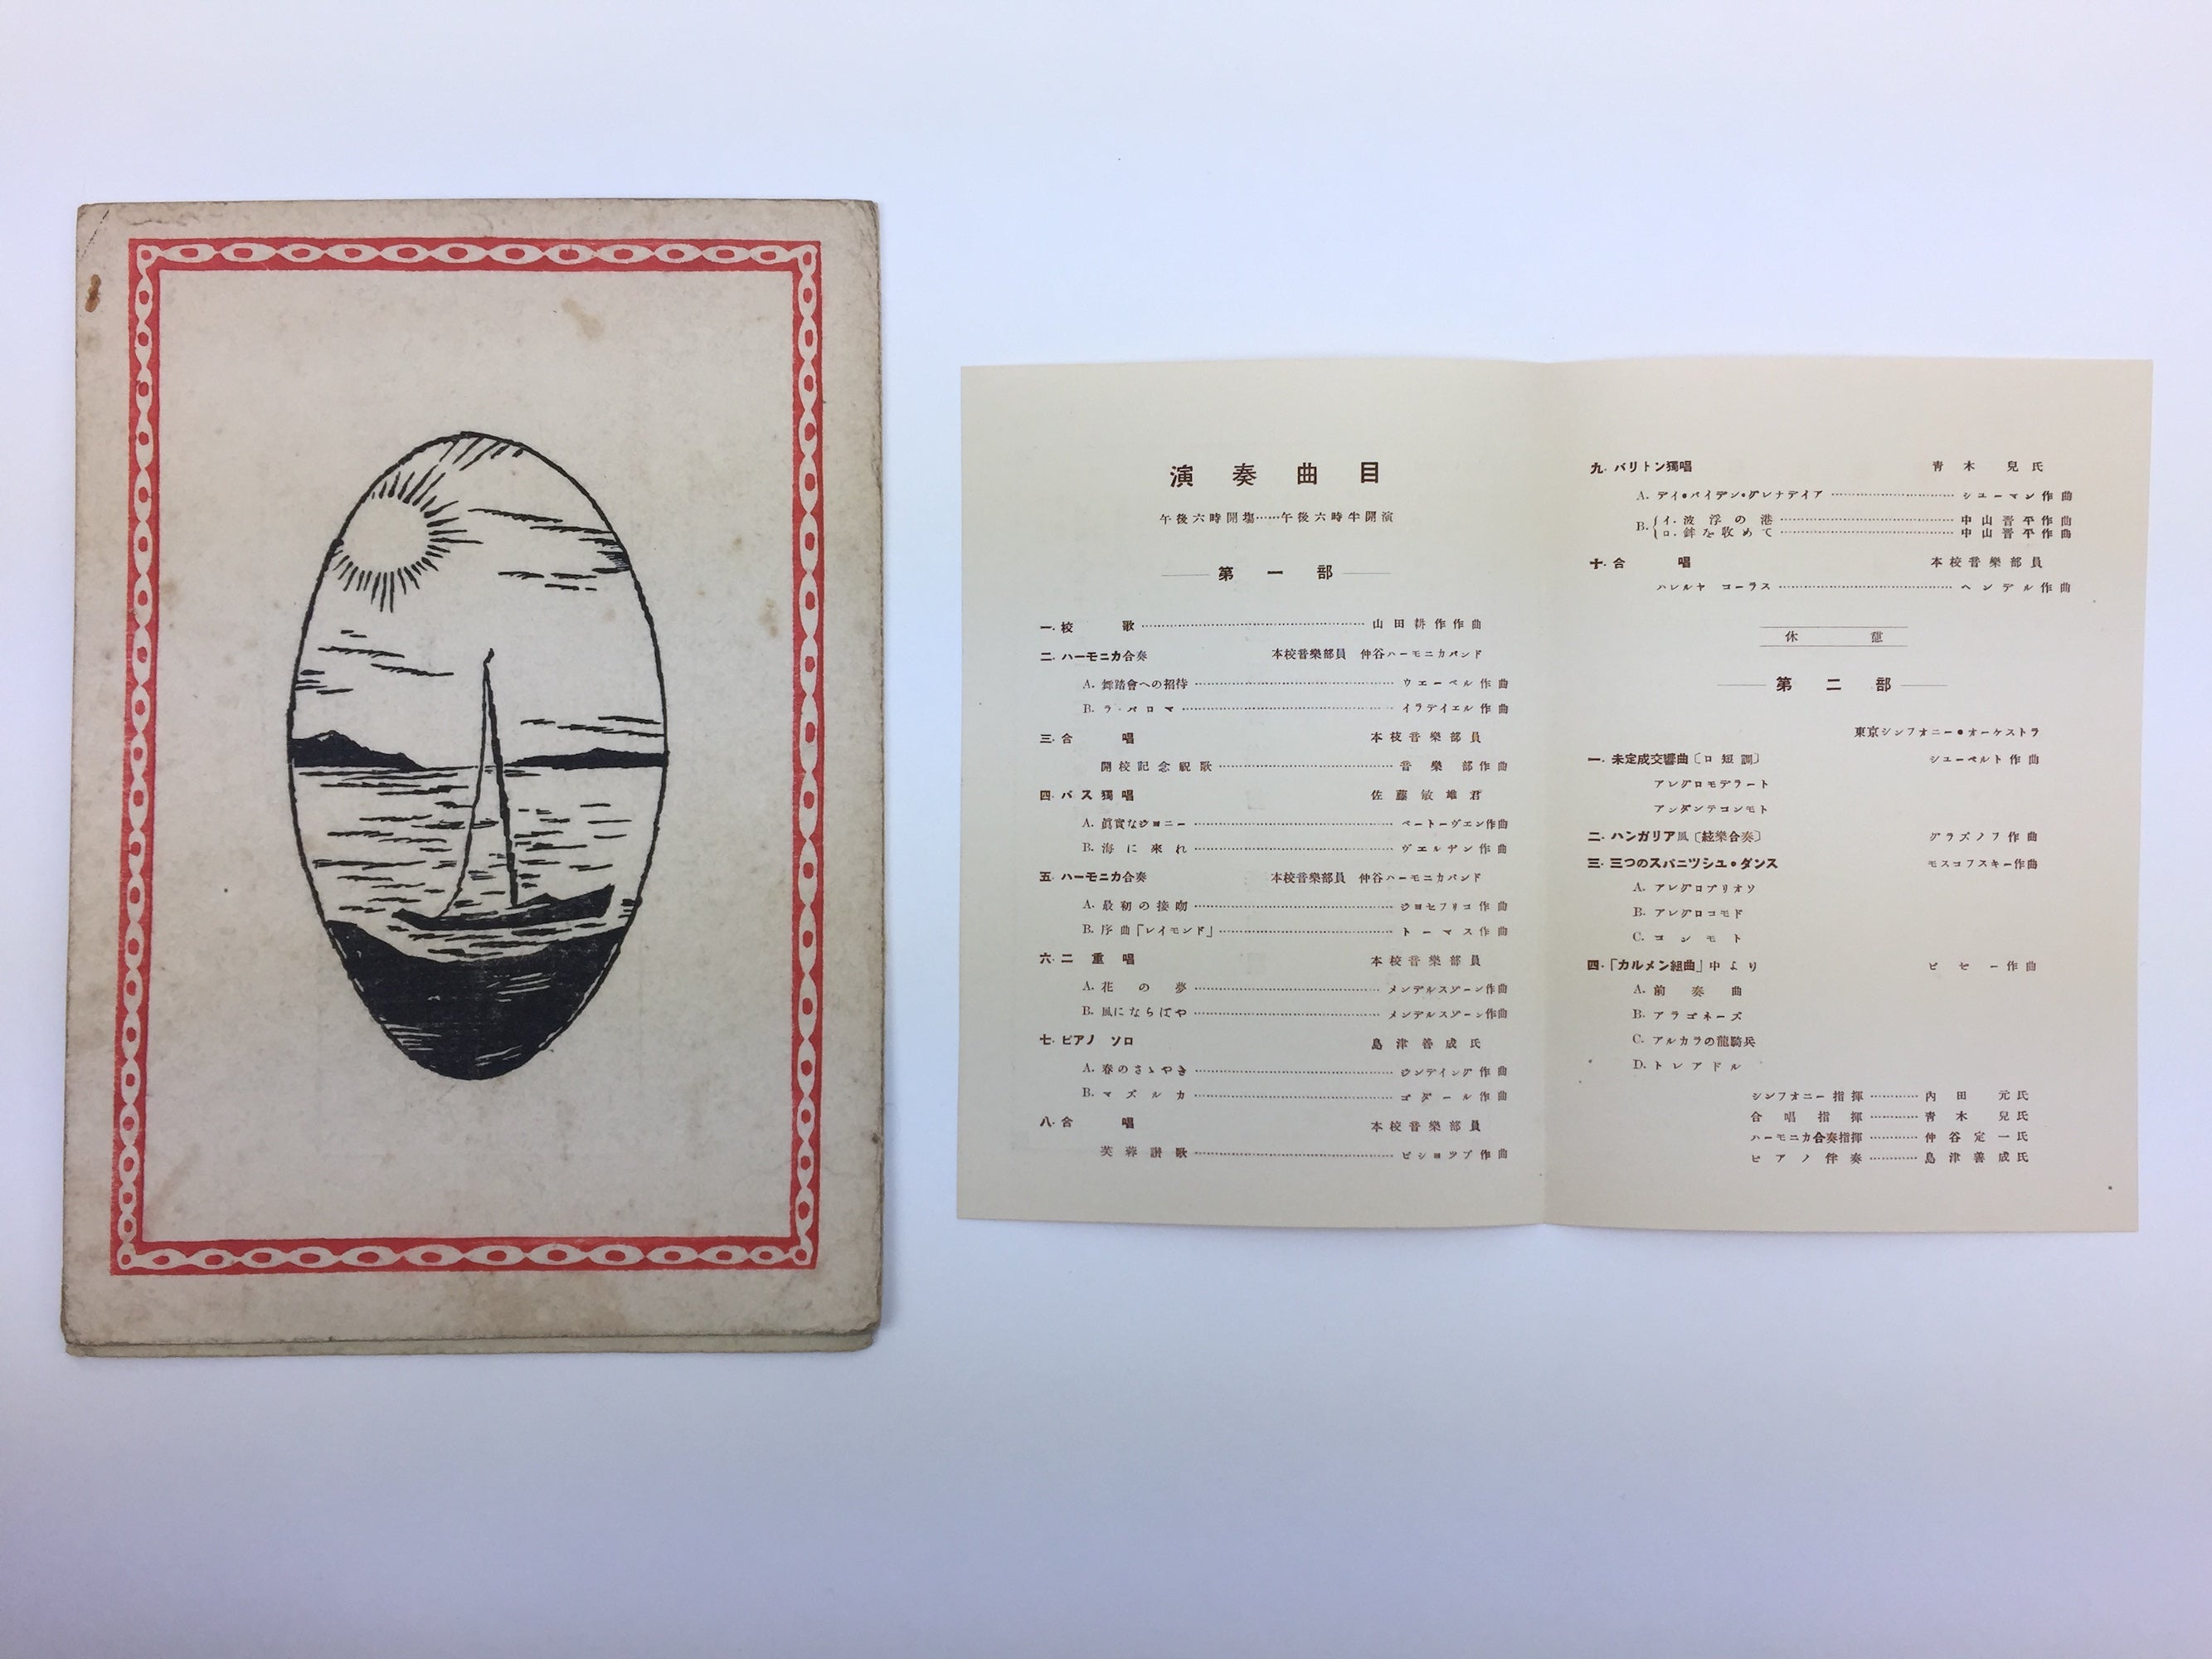 演奏曲目
午後六時開場……午後六時半開演
第一部
一. 校歌……山田耕作作曲
二. ハーモニカ合奏 本校音樂部員 仲谷ハーモニカバンド
A. 舞踏會への招待……ウエーベル作曲
B. ラ・パロマ……イラデイエル作曲
三. 合唱 本校音樂部員
開校記念祝歌……音樂部作曲
四. バス獨唱 佐藤敏雄君
A. 眞實なジヨニー……ベートーヴエン作曲
B. 海に來れ……ヴエルデン作曲
五. ハーモニカ合奏 本校音樂部員 仲谷ハーモニカバンド
A. 最初の接吻……ジヨセフリコ作曲
B. 序曲「レイモンド」……トーマス作曲
六. 二重唱 本校音樂部員
A. 花の夢……メンデルスゾーン作曲
B. 風にならばや……メンデルスゾーン作曲
七. ピアノ ソロ 島津善成氏
A. 春のさゝやき……シンデイング作曲
B. マズルカ……ゴダール作曲
八. 合唱 本校音樂部員
芙蓉讃歌……ビショツプ作曲
九. バリトン獨唱 青木兒氏
A. デイ・バイデン・グレナデイア……シユーマン作曲
B. イ. 波浮の港……中山晋平作曲
ロ. 鉾を收めて……中山晋平作曲
十. 合唱 本校音樂部員
ハレルヤ コーラス……ヘンデル作曲
休憩
第二部
東京シンフオニー・オーケストラ
一. 未定成交響曲〔ロ短調〕 シユーベルト作曲
アレグロモデラート
アンダンテコンモト
二. ハンガリア風〔絃樂合奏〕 グラズノフ作曲
三. 三つのスパニツシユ・ダンス モスコフスキー作曲
A. アレグロブリオソ
B. アレグロコモド
C. コンモト
四. 「カルメン組曲」中より ビセー作曲
A. 前奏曲
B. アラゴネーズ
C. アルカラの龍騎兵
D. トレアドル
シンフオニー指揮……内田元氏
合唱指揮……青木兒氏
ハーモニカ合奏指揮……仲谷定一氏
ピアノ伴奏……島津善成氏